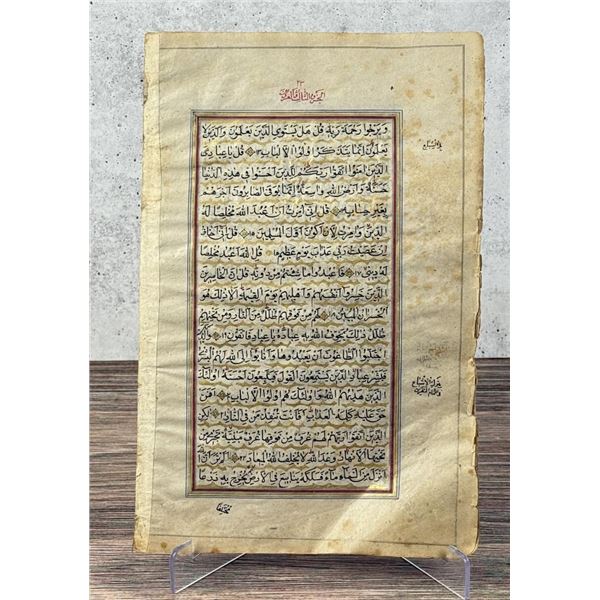 ٢٣
الجزء الثالث والعشرون
وَيَرْجُوا رَحْمَةَ رَبِّهِ قُلْ هَلْ يَسْتَوِي الَّذِينَ يَعْلَمُونَ وَالَّذِينَ لَا
يَعْلَمُونَ إِنَّمَا يَتَذَكَّرُ أُولُوا الْأَلْبَابِ قُلْ يَا عِبَادِيَ
الَّذِينَ آمَنُوا اتَّقُوا رَبَّكُمْ لِلَّذِينَ أَحْسَنُوا فِي هَذِهِ الدُّنْيَا
حَسَنَةٌ وَأَرْضُ اللَّهِ وَاسِعَةٌ إِنَّمَا يُوَفَّى الصَّابِرُونَ أَجْرَهُمْ
بِغَيْرِ حِسَابٍ قُلْ إِنِّي أُمِرْتُ أَنْ أَعْبُدَ اللَّهَ مُخْلِصًا لَهُ
الدِّينَ وَأُمِرْتُ لِأَنْ أَكُونَ أَوَّلَ الْمُسْلِمِينَ ١٥ قُلْ إِنِّي أَخَافُ
إِنْ عَصَيْتُ رَبِّي عَذَابَ يَوْمٍ عَظِيمٍ قُلِ اللَّهَ أَعْبُدُ مُخْلِصًا
لَهُ دِينِي ١٧ فَاعْبُدُوا مَا شِئْتُمْ مِنْ دُونِهِ قُلْ إِنَّ الْخَاسِرِينَ
الَّذِينَ خَسِرُوا أَنْفُسَهُمْ وَأَهْلِيهِمْ يَوْمَ الْقِيَمَةِ أَلَا ذَلِكَ هُوَ
الْخُسْرَانُ الْمُبِينُ ١٨ لَهُمْ مِنْ فَوْقِهِمْ ظُلَلٌ مِنَ النَّارِ وَمِنْ تَحْتِهِمْ
ظُلَلٌ ذَلِكَ يُخَوِّفُ اللَّهُ بِهِ عِبَادَهُ يَا عِبَادِ فَاتَّقُونِ وَالَّذِينَ
اجْتَنَبُوا الطَّاغُوتَ أَنْ يَعْبُدُوهَا وَأَنَابُوا إِلَى اللَّهِ لَهُمُ الْبُشْرَى
فَبَشِّرْ عِبَادِ الَّذِينَ يَسْتَمِعُونَ الْقَوْلَ فَيَتَّبِعُونَ أَحْسَنَهُ أُولَئِكَ
الَّذِينَ هَدَيهُمُ اللَّهُ وَأُولَئِكَ هُمْ أُولُوا الْأَلْبَابِ أَفَمَنْ
حَقَّ عَلَيْهِ كَلِمَةُ الْعَذَابِ أَفَأَنْتَ تُنْقِذُ مَنْ فِي النَّارِ لَكِنِ
الَّذِينَ اتَّقَوْا رَبَّهُمْ لَهُمْ غُرَفٌ مِنْ فَوْقِهَا غُرَفٌ مَبْنِيَّةٌ تَجْرِي مِنْ
تَحْتِهَا الْأَنْهَارُ وَعْدَ اللَّهِ لَا يُخْلِفُ اللَّهُ الْمِيعَادَ ٢٢ أَلَمْ تَرَ أَنَّ اللَّهَ
أَنْزَلَ مِنَ السَّمَاءِ مَاءً فَسَلَكَهُ يَنَابِيعَ فِي الْأَرْضِ ثُمَّ يُخْرِجُ بِهِ زَرْعًا